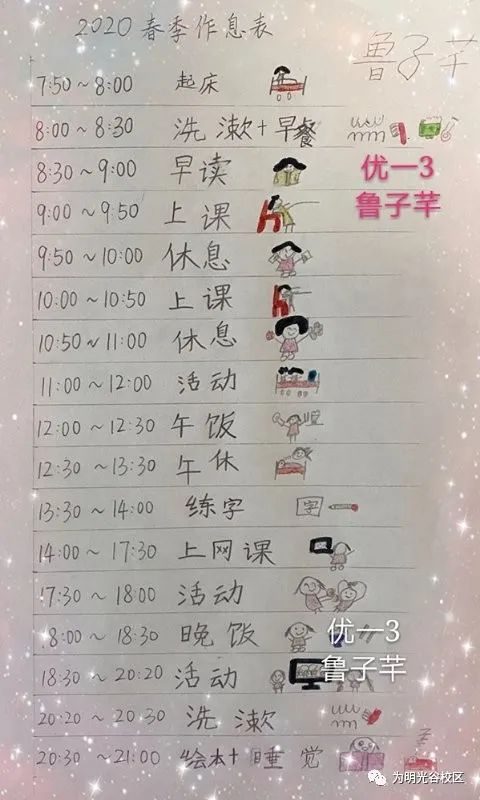 2020 春季作息表
鲁子芊
7:50~8:00 起床
8:00~8:30 洗漱+早餐
优一3
鲁子芊
8:30~9:00 早读
9:00~9:50 上课
9:50~10:00 休息
10:00~10:50 上课
10:50~11:00 休息
11:00~12:00 活动
12:00~12:30 午饭
12:30~13:30 午休
13:30~14:00 练字
字
14:00~17:30 上网课
17:30~18:00 活动
18:00~18:30 晚饭
优一3
鲁子芊
18:30~20:20 活动
20:20~20:30 洗漱
20:30~21:00 绘本+睡觉
为明光谷校区